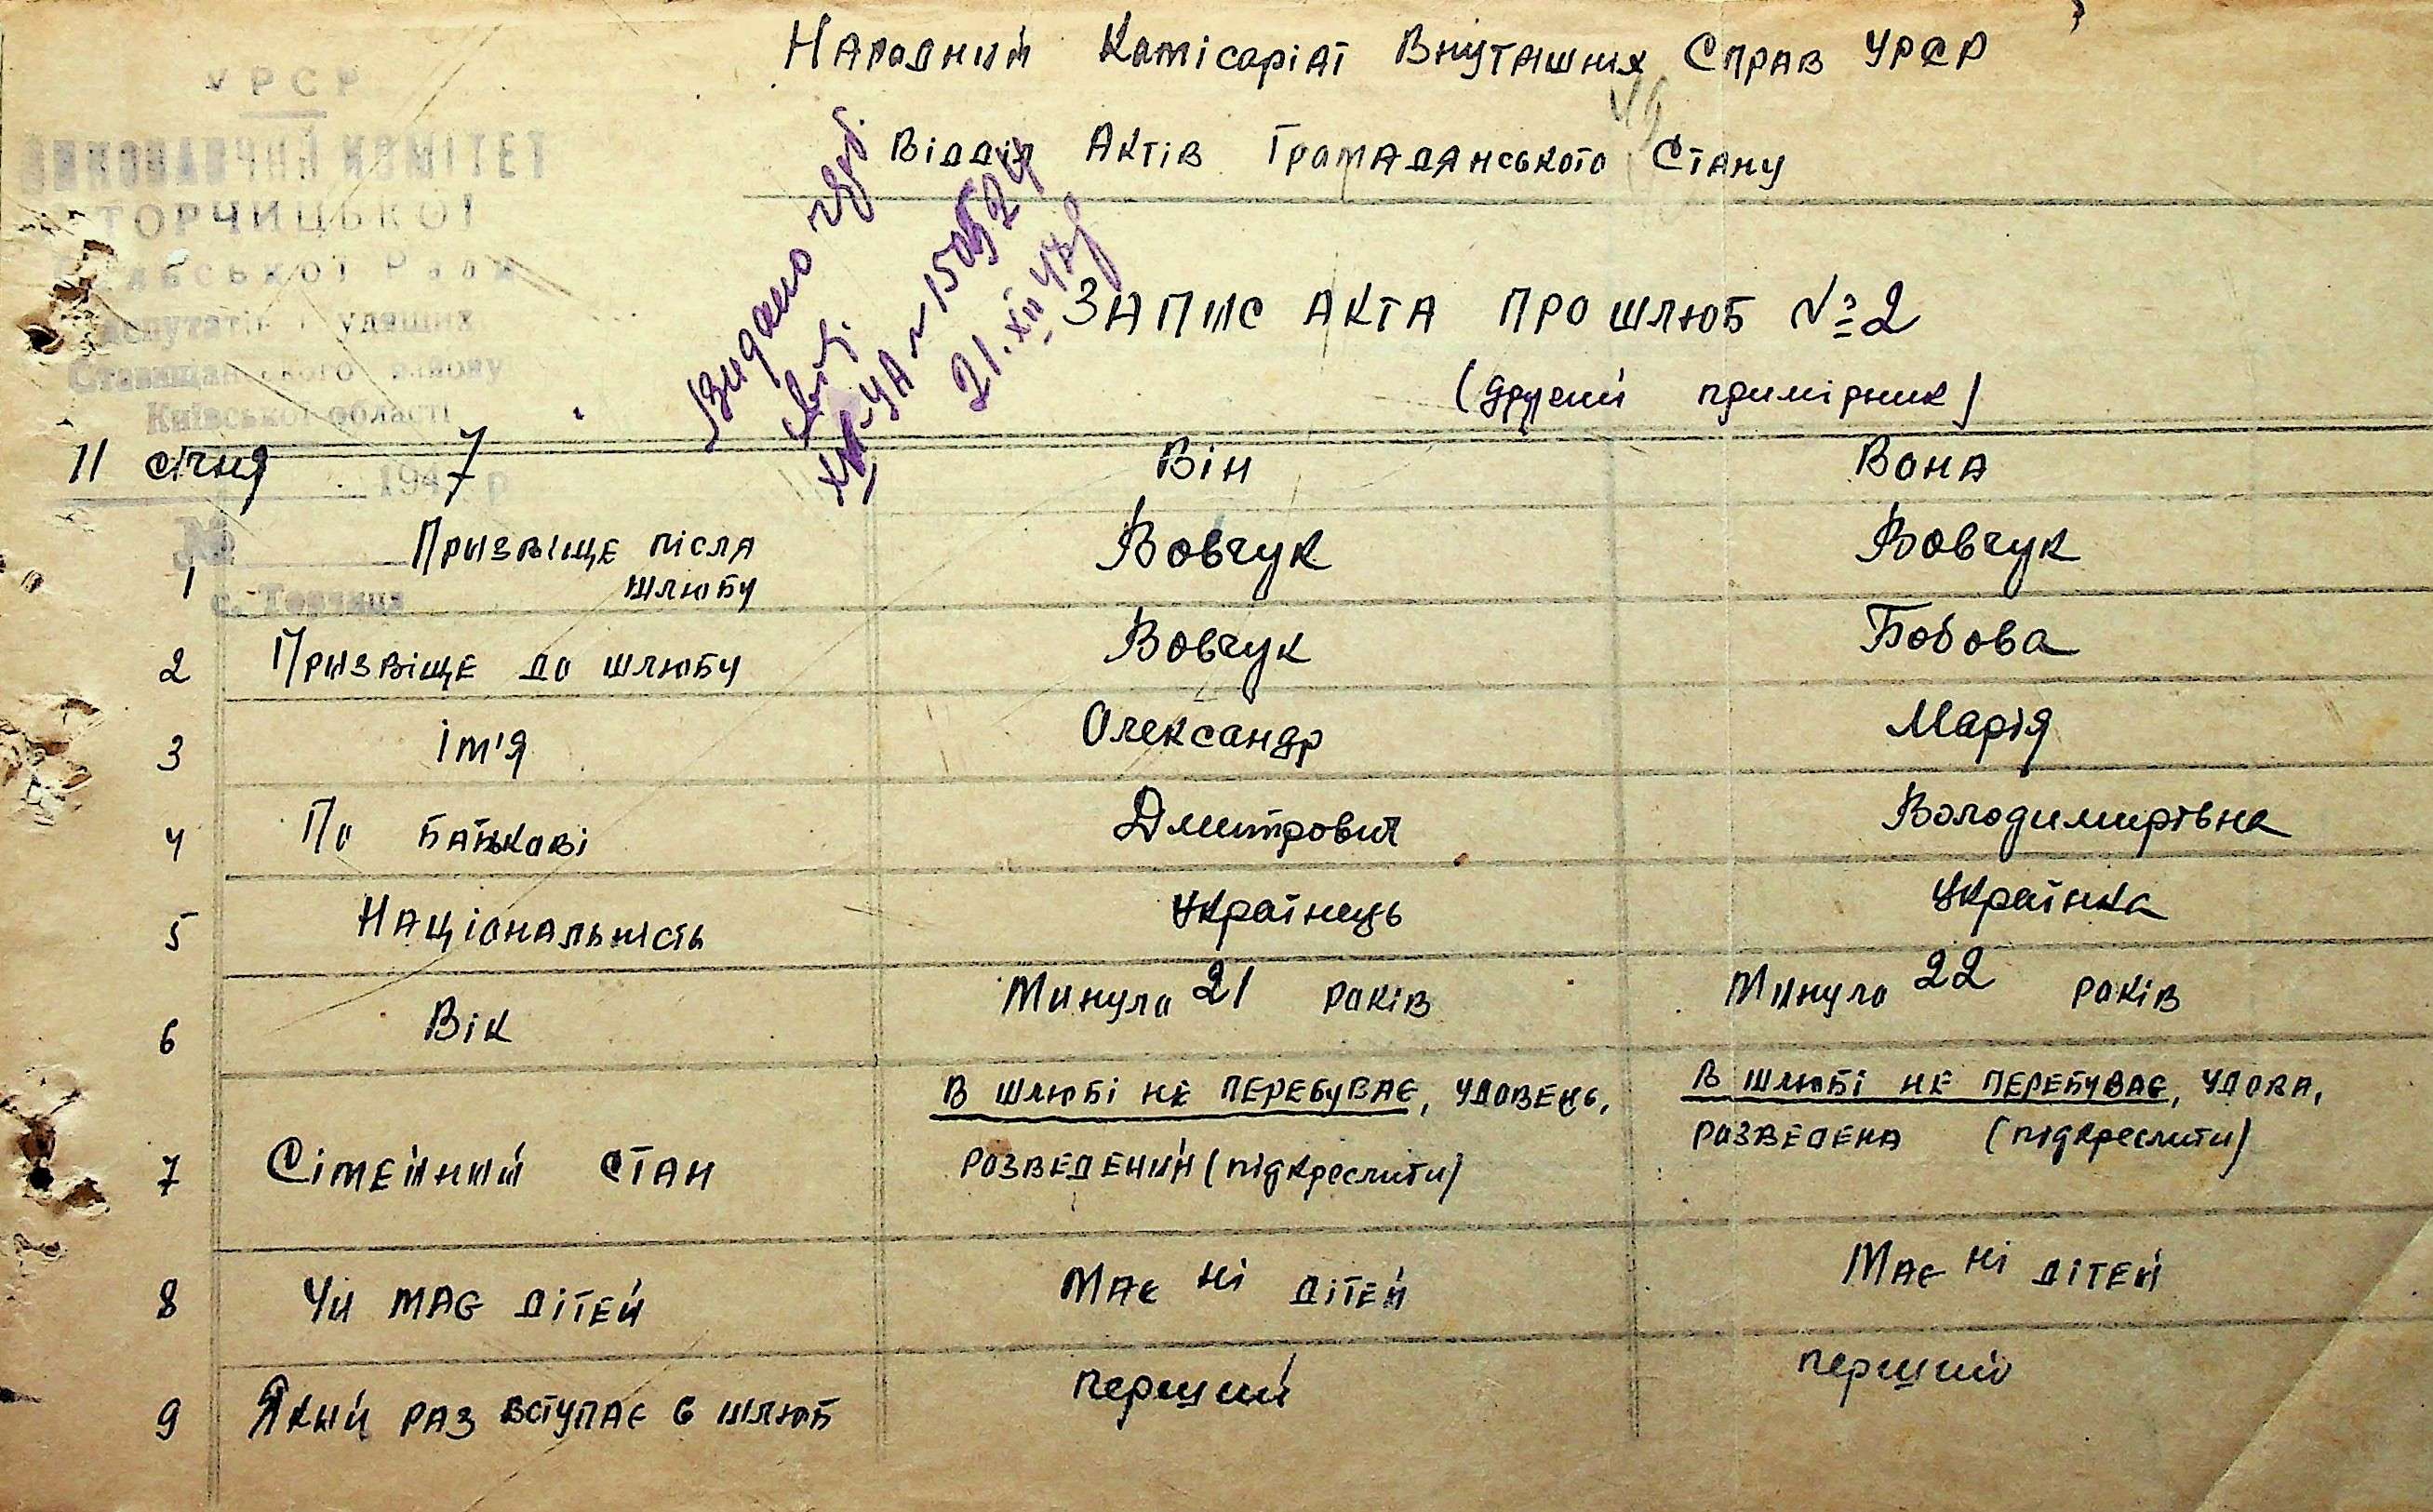 Народний Комісаріат Внутрішних Справ УРСР
Відділ Актів Громадянського Стану
УРСР
ВИКОНАВЧИЙ КОМІТЕТ
ТОРЧИЦЬКОЇ
Сільської Ради
депутатів трудящих
Ставищанського району
Київської області
11 січня 1947 р
№
с. Торчиця
Видано
21.XII 47р
ЗАПИС АКТА ПРО ШЛЮБ № 2
(другий примірник)
Він Вона
1 Призвіще після шлюбу Вовчук Вовчук
2 Призвіще до шлюбу Вовчук Бобова
3 Ім'я Олександр Марія
4 По батькові Дмитрович Володимирівна
5 Національність Українець Українка
6 Вік Минуло 21 років Минуло 22 років
7 Сімейний стан В шлюбі не перебуває, удовець, розведений (підкреслити) В шлюбі не перебуває, удова, розведена (підкреслити)
8 Чи має дітей Має ні дітей Має ні дітей
9 Який раз вступає в шлюб перший перший